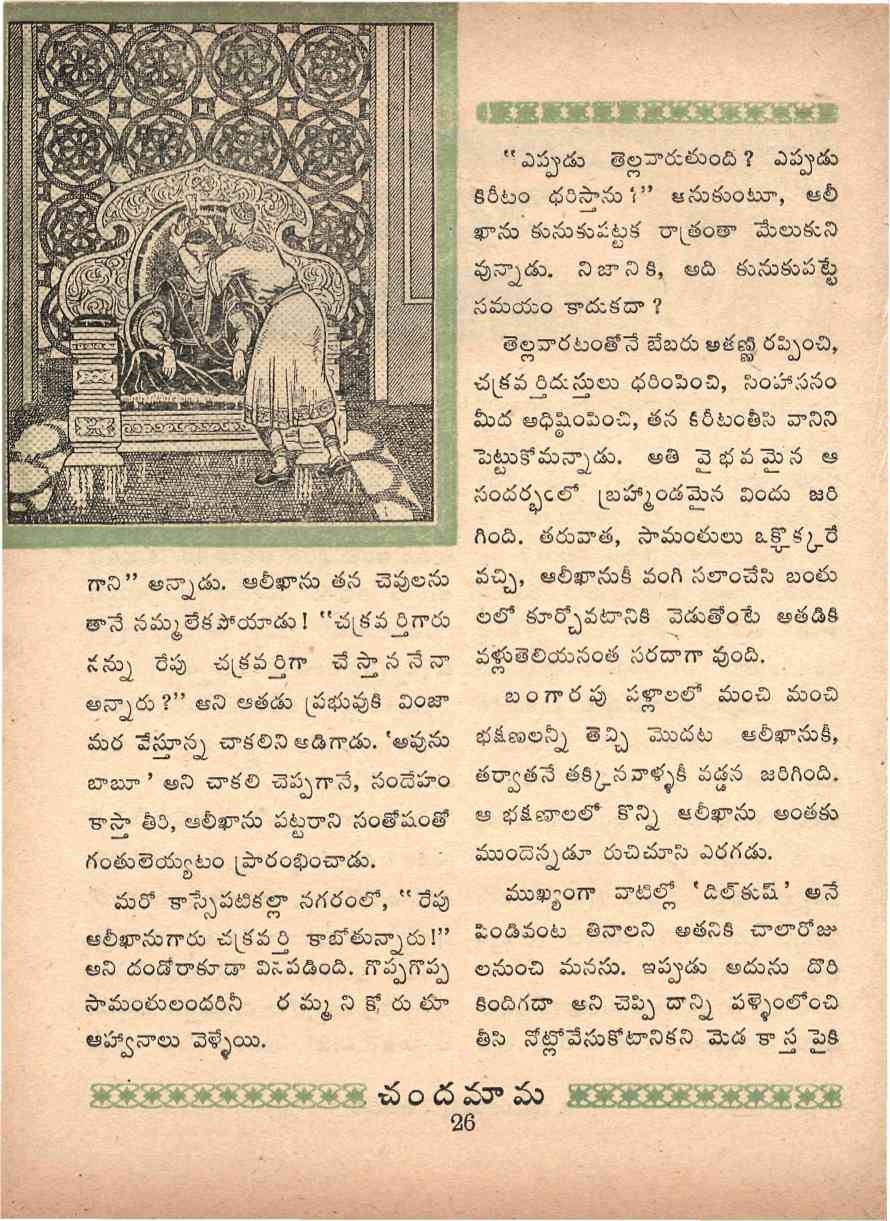 గాని” అన్నాడు. ఆలీఖాను తన చెవులను
తానే నమ్మలేకపోయాడు! “చక్రవర్తిగారు
నన్ను రేపు చక్రవర్తిగా చేస్తాననేనా
అన్నారు?” అని ఆతడు ప్రభువుకి వింజా
మర వేస్తూన్న చాకలిని అడిగాడు. ‘అవును
బాబూ’ అని చాకలి చెప్పగానే, సందేహం
కాస్తా తీరి, ఆలీఖాను పట్టరాని సంతోషంతో
గంతులెయ్యటం ప్రారంభించాడు.
మరో కాస్సేపటికల్లా నగరంలో, “రేపు
ఆలీఖానుగారు చక్రవర్తి కాబోతున్నారు!”
అని దండోరాకూడా వినపడింది. గొప్పగొప్ప
సామంతులందరినీ రమ్మనికోరుతూ
ఆహ్వానాలు వెళ్ళేయి.
“ఎప్పుడు తెల్లవారుతుంది? ఎప్పుడు
కిరీటం ధరిస్తాను?” అనుకుంటూ, ఆలీ
ఖాను కునుకుపట్టక రాత్రంతా మేలుకుని
వున్నాడు. నిజానికి, అది కునుకుపట్టే
సమయం కాదుకదా?
తెల్లవారటంతోనే బేబరు అతణ్ణి రప్పించి,
చక్రవర్తిదుస్తులు ధరింపించి, సింహాసనం
మీద అధిష్ఠింపించి, తన కిరీటంతీసి వానిని
పెట్టుకోమన్నాడు. అతి వైభవమైన ఆ
సందర్భంలో బ్రహ్మాండమైన విందు జరి
గింది. తరువాత, సామంతులు ఒక్కొక్కరే
వచ్చి, ఆలీఖానుకీ వంగి సలాంచేసి బంతు
లలో కూర్చోవటానికి వెడుతోంటే అతడికి
వళ్లుతెలియనంత సరదాగా వుంది.
బంగారపు పళ్లాలలో మంచి మంచి
భక్షణలన్నీ తెచ్చి మొదట ఆలీఖానుకీ,
తర్వాతనే తక్కినవాళ్ళకీ వడ్డన జరిగింది.
ఆ భక్షణాలలో కొన్ని ఆలీఖాను అంతకు
ముందెన్నడూ రుచిచూసి ఎరగడు.
ముఖ్యంగా వాటిల్లో ‘డిల్‌కుష్’ అనే
పిండివంట తినాలని అతనికి చాలారోజు
లనుంచి మనసు. ఇప్పుడు అదును దొరి
కిందిగదా అని చెప్పి దాన్ని పళ్ళెంలోంచి
తీసి నోట్లోవేసుకోటానికని మెడ కాస్త పైకి
చందమామ
26